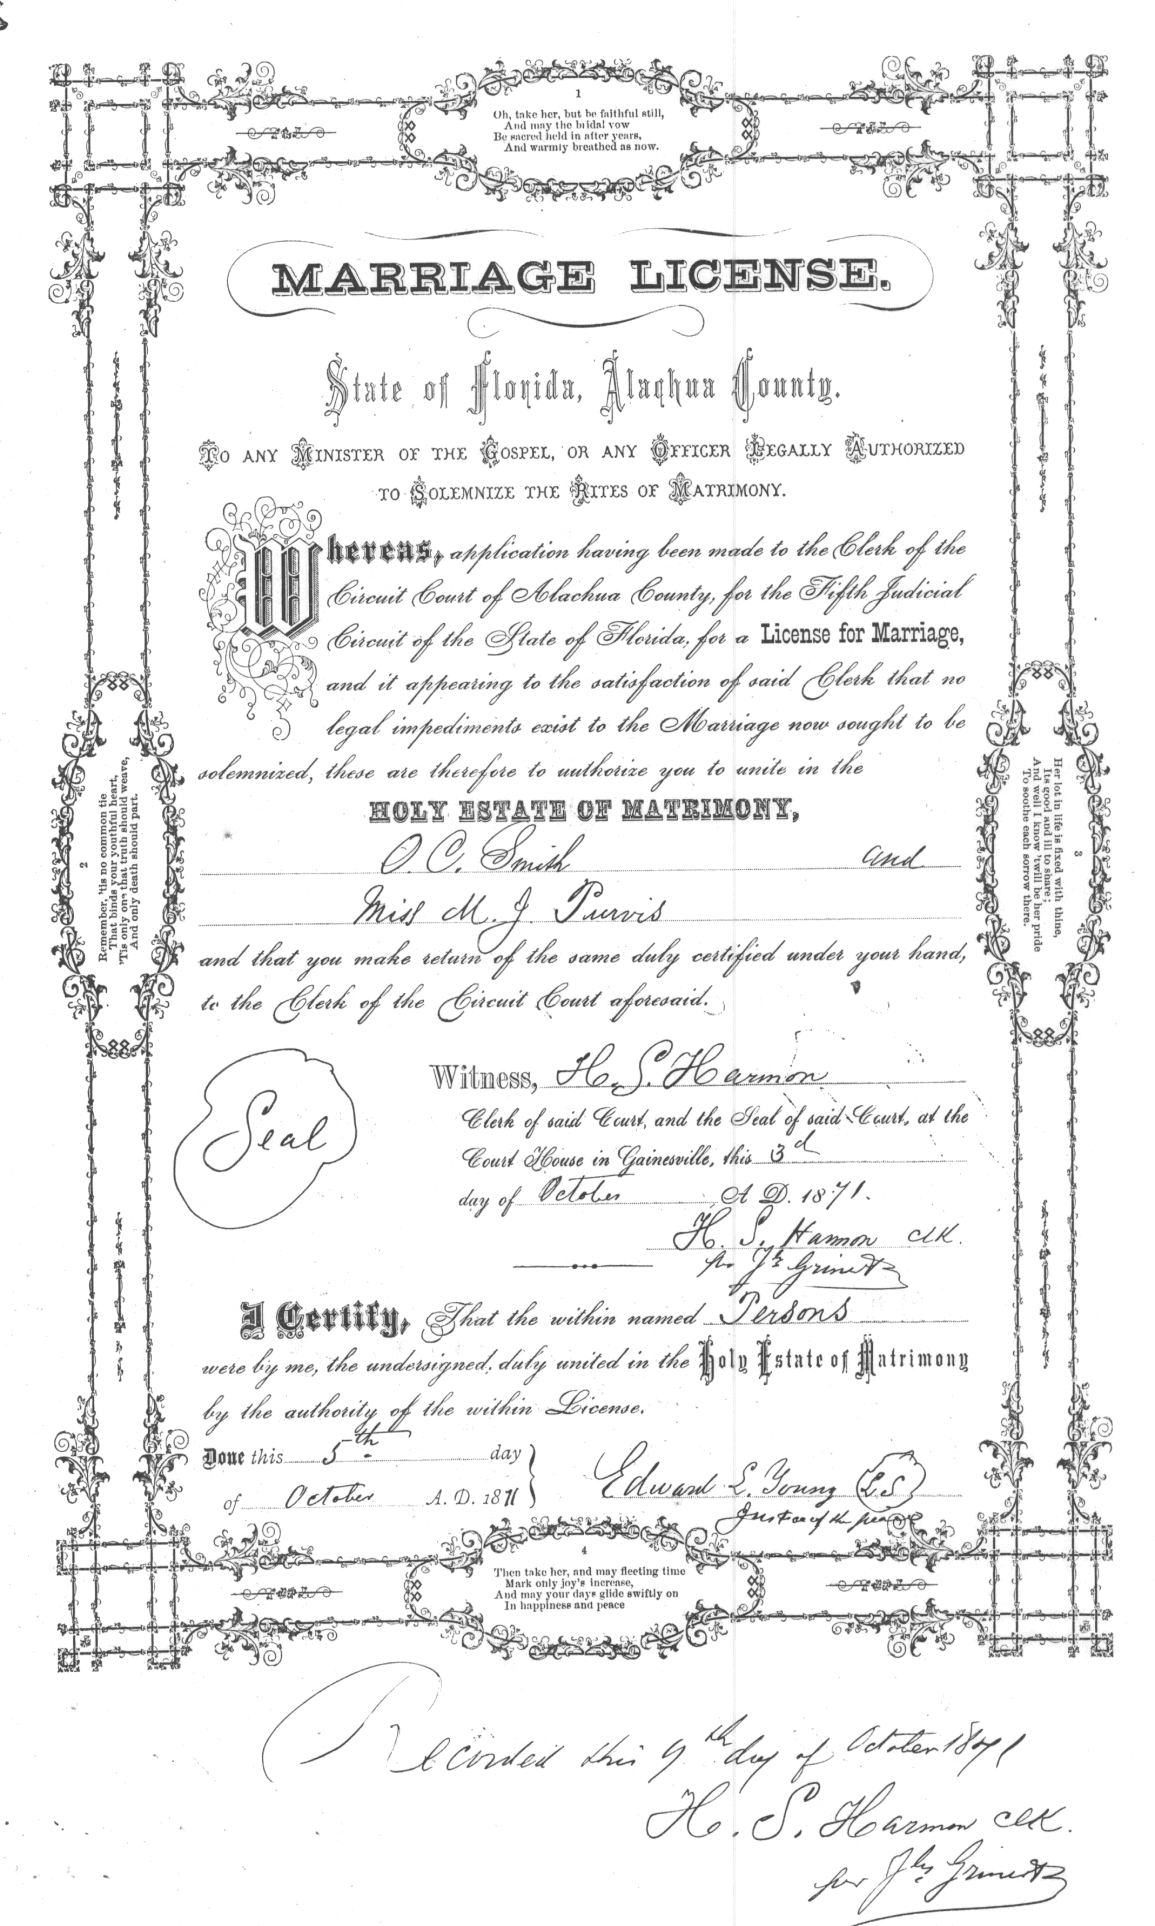 1
Oh, take her, but be faithful still,
And may the bridal vow
Be sacred held in after years,
And warmly breathed as now.
MARRIAGE LICENSE.
State of Florida, Alachua County.
TO ANY MINISTER OF THE GOSPEL, OR ANY OFFICER LEGALLY AUTHORIZED
TO SOLEMNIZE THE RITES OF MATRIMONY.
Whereas, application having been made to the Clerk of the
Circuit Court of Alachua County, for the Fifth Judicial
Circuit of the State of Florida, for a License for Marriage,
and it appearing to the satisfaction of said Clerk that no
legal impediments exist to the Marriage now sought to be
solemnized, these are therefore to authorize you to unite in the
HOLY ESTATE OF MATRIMONY,
O. C. Smith and
Miss M. J. Purvis
and that you make return of the same duly certified under your hand,
to the Clerk of the Circuit Court aforesaid.
2
Remember, 'tis no common tie
That binds your youthful heart,
'Tis only one that truth should weave,
And only death should part.
3
Her lot in life is fixed with thine,
Its good and ill to share;
And well I know 'twill be her pride
To soothe each sorrow there.
Seal
Witness, H. S. Harmon
Clerk of said Court, and the Seal of said Court, at the
Court House in Gainesville, this 3d
day of October A. D. 1871.
H. S. Harmon Clk.
per
I Certify, That the within named Persons
were by me, the undersigned, duly united in the Holy Estate of Matrimony
by the authority of the within License.
Done this 5th day
of October A. D. 1871
Edward L. Young L S
Justice of the peace
4
Then take her, and may fleeting time
Mark only joy's increase,
And may your days glide swiftly on
In happiness and peace
Recorded this 9th day of October 1871
H. S. Harmon Clk.
per